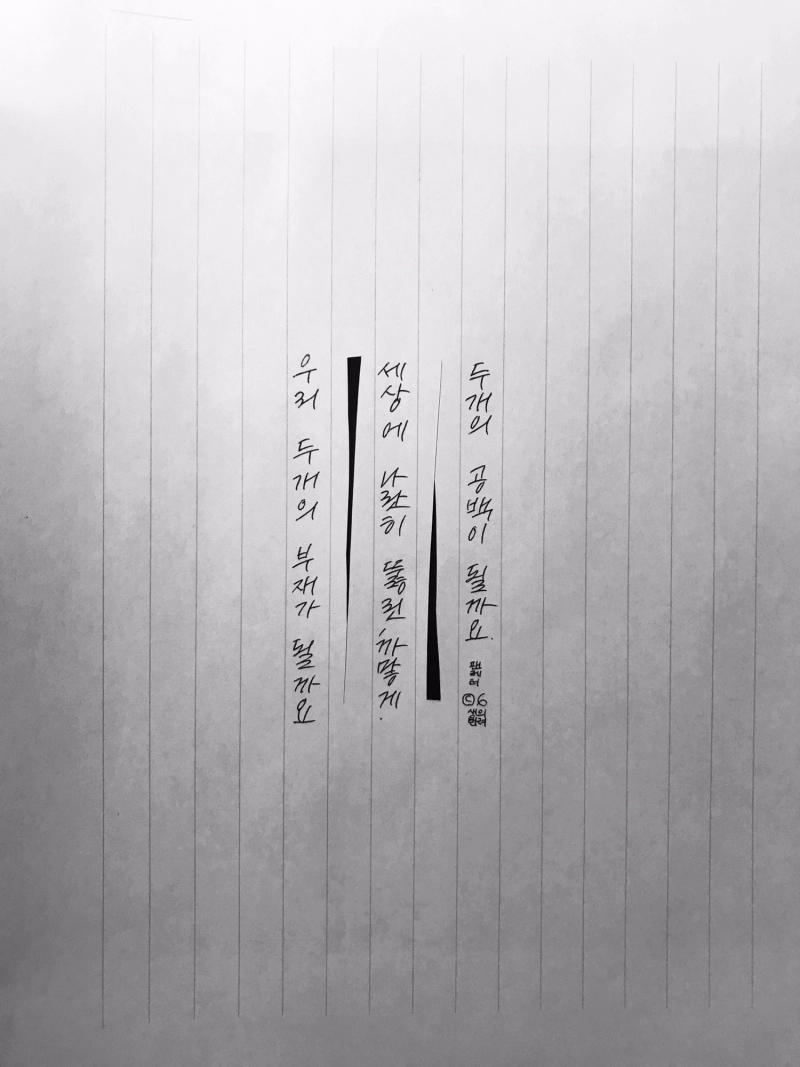 우리 두개의 부재가 될까요
세상에 나란히 뚫린, 까맣게.
두개의 공백이 될까요.
팬레터
ⓒ16
생의반려